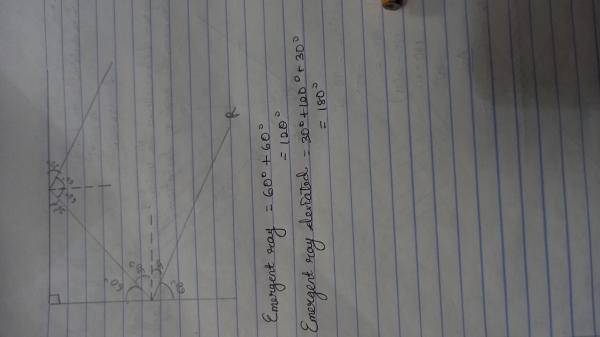 R
60°
30°
30°
60°
Emergent ray = 60° + 60°
= 120°
Emergent ray deviated = 30° + 120° + 30°
= 180°